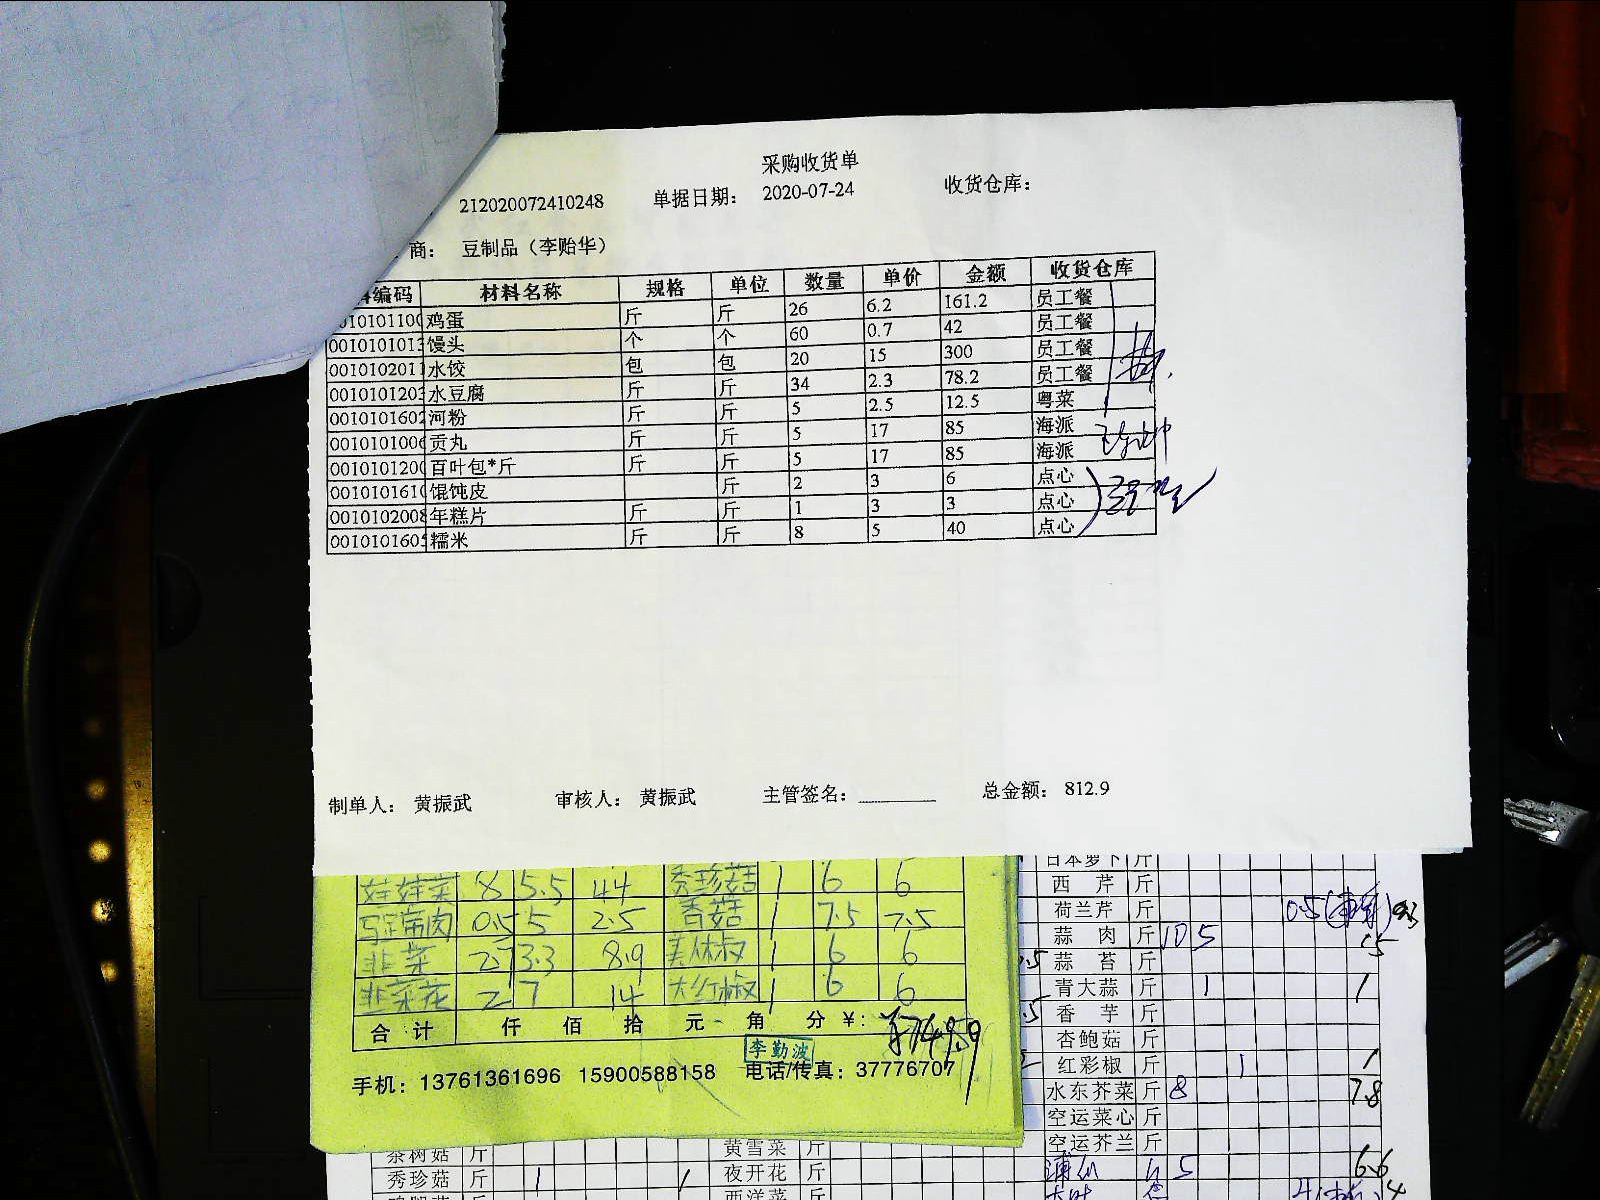 采购收货单
212020072410248 单据日期： 2020-07-24 收货仓库：
商： 豆制品（李贻华）
编码 材料名称 规格 单位 数量 单价 金额 收货仓库
鸡蛋 斤 斤 26 6.2 161.2 员工餐
馒头 个 个 60 0.7 42 员工餐
水饺 包 包 20 15 300 员工餐
水豆腐 斤 斤 34 2.3 78.2 员工餐
河粉 斤 斤 5 2.5 12.5 粤菜
贡丸 斤 斤 5 17 85 海派
百叶包*斤 斤 斤 5 17 85 海派
馄饨皮 斤 2 3 6 点心
年糕片 斤 斤 1 3 3 点心
糯米 斤 斤 8 5 40 点心
制单人： 黄振武 审核人： 黄振武 主管签名： 总金额： 812.9
娃娃菜 8 5.5 44 秀珍菇 1 6 6
0.5 5 2.5 香菇 1 7.5 7.5
韭菜 2.7 3.3 8.9 美人椒 1 6 6
韭菜花 2 7 14 大红椒 1 6 6
合计 仟 佰 拾 元 角 分 ¥:
李勤波
手机：13761361696 15900588158 电话/传真：37776707
日本萝卜 斤
西芹 斤
荷兰芹 斤
蒜肉 斤 10 5
蒜苔 斤
青大蒜 斤 1 1
香芋 斤
杏鲍菇 斤
红彩椒 斤 1 1
水东芥菜 斤 8 7.8
空运菜心 斤
空运芥兰 斤
茶树菇 斤 黄雪菜 斤
秀珍菇 斤 1 1 夜开花 斤 5 6.6
西洋菜 斤